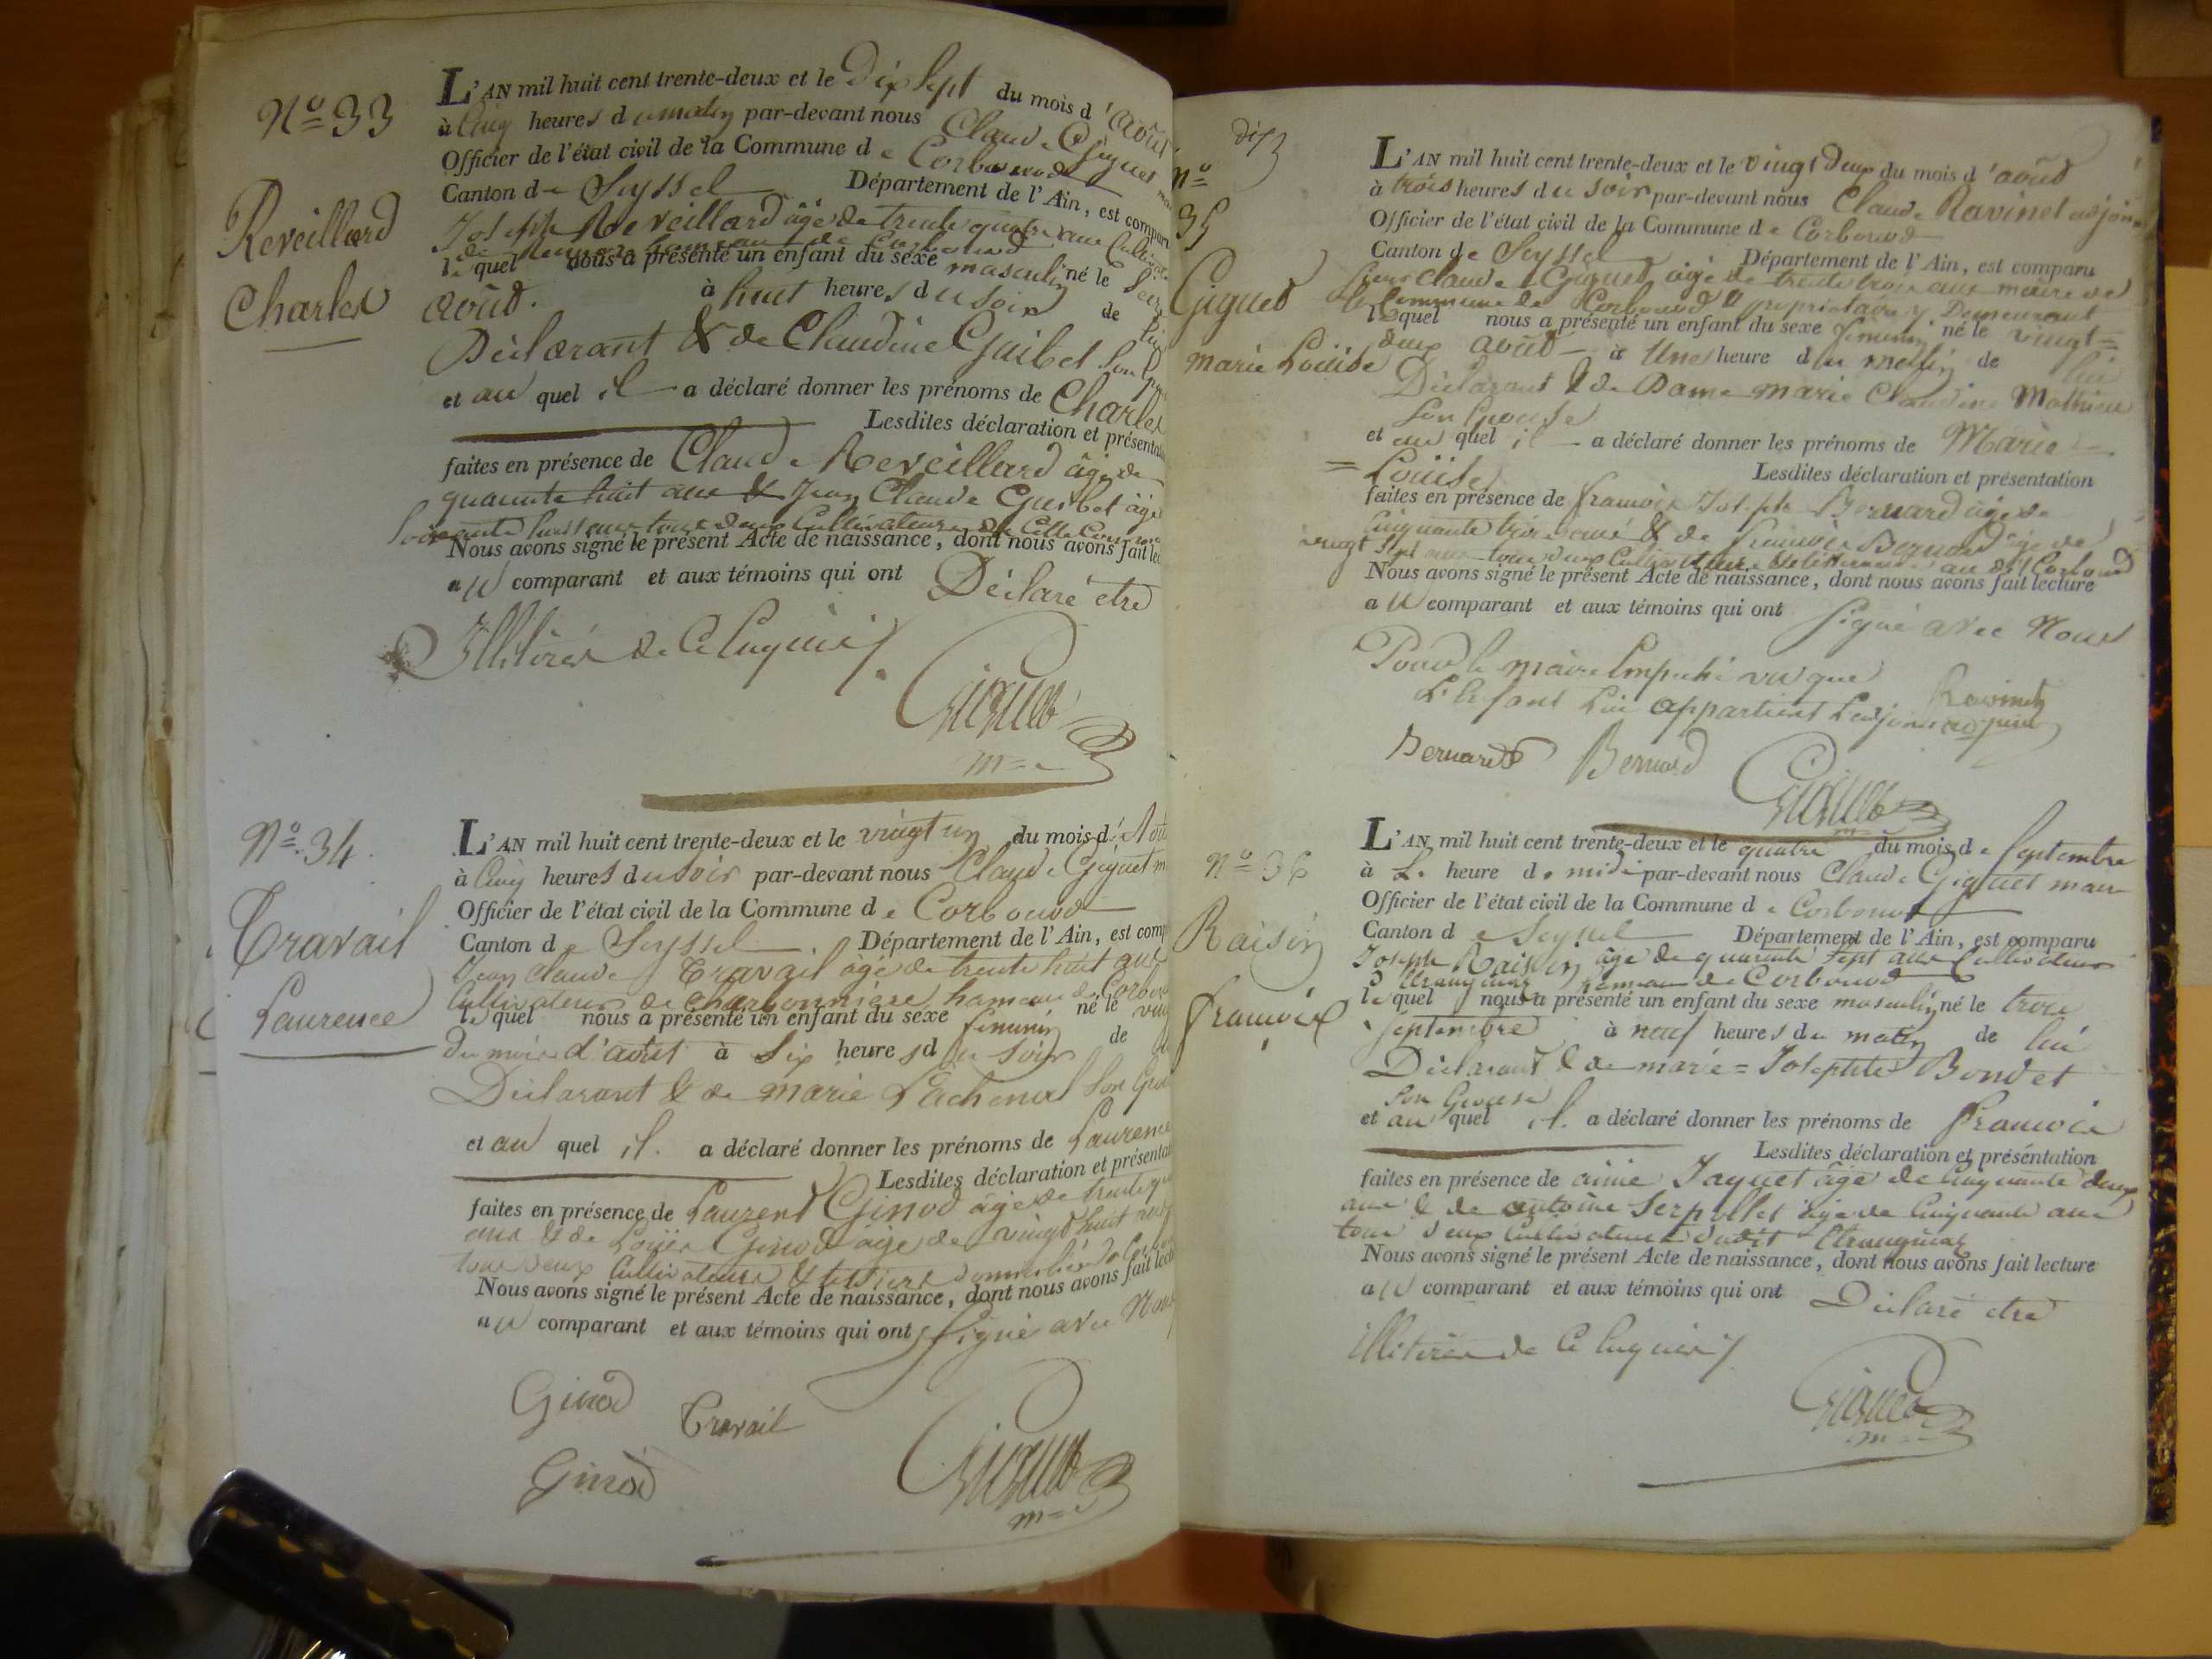 Nº 33
Reveillard
Charles
L'AN mil huit cent trente-deux et le Dix Sept du mois d'août
à Cinq heures du matin par-devant nous Claude Giguet
Officier de l'état civil de la Commune de Corbonod
Canton de Seyssel Département de l'Ain, est comparu
Joseph Reveillard âgé de trente quatre ans
lequel nous a présenté un enfant du sexe masculin né le
août. à huit heures du soir de
Déclarant & de Claudine Guibet Son
et au quel il a déclaré donner les prénoms de Charles
Lesdites déclaration et présenta
faites en présence de Claude Reveillard âgé de
quarante huit ans & Jean Claude Guibet âgé
Soixante huit ans tous deux Cultivateurs de Cette
Nous avons signé le présent Acte de naissance, dont nous avons fait lec
au comparant et aux témoins qui ont Déclaré etre
Illitérés de Ce Enquis
Giguet
m=e
Nº 34
Travail
Laurence
L'AN mil huit cent trente-deux et le vingt un du mois d'Aout
à Cinq heures du soir par-devant nous Claude Giguet m
Officier de l'état civil de la Commune de Corbonod
Canton de Seyssel Département de l'Ain, est comp
Jean Claude Travail âgé de trente huit ans
Cultivateur de Charbonniere hameau de Corbon
lequel nous a présenté un enfant du sexe feminin né le
du mois d'août à Six heures du soir de
Déclarant & de marie Lachenal Son
et au quel il a déclaré donner les prénoms de Laurence
Lesdites déclaration et présenta
faites en présence de Laurent Ginod âgé de trente
ans & de Louis Ginod âgé de vingt huit
tous deux Cultivateurs &
Nous avons signé le présent Acte de naissance, dont nous avons fait lec
au comparant et aux témoins qui ont Signé avec Nous
Ginod Travail
Ginod Giguet
m=e
Nº
35
Giguet
marie Louise
L'AN mil huit cent trente-deux et le vingt deux du mois d'août
à trois heures du soir par-devant nous Claude Ravinet adjoint
Officier de l'état civil de la Commune de Corbonod
Canton de Seyssel Département de l'Ain, est comparu
Sieur Claude Giguet âgé de trente trois ans maire de
la Commune de Corbonod propriétaire y Demeurant
lequel nous a présenté un enfant du sexe féminin né le vingt=
deux août à Une heure du matin de lui
Déclarant & de Dame marie Claudine Mathieu
Son Epouse
et au quel il a déclaré donner les prénoms de Marie =
= Louise Lesdites déclaration et présentation
faites en présence de francois Joseph Bernard âgé de
Cinquante trois ans & de francois Bernard âgé de
vingt Sept ans tous deux Cultivateurs au dit Corbonod
Nous avons signé le présent Acte de naissance, dont nous avons fait lecture
au comparant et aux témoins qui ont Signé avec Nous
Pour le maire Empeché vu que
L'Enfant Lui appartient L'adjoint Ravinet
adjoint
Bernard Bernard
Giguet
Nº 36
Raisin
francois
L'AN mil huit cent trente-deux et le quatre du mois de Septembre
à L. heure de midi par-devant nous Claude Giguet maire
Officier de l'état civil de la Commune de Corbonod
Canton de Seyssel Département de l'Ain, est comparu
Joseph Raisin âgé de quarante Sept ans Cultivateur
hameau de Corbonod
lequel nous a présenté un enfant du sexe masculin né le trois
Septembre à neuf heures du matin de lui
Déclarant & de marie = Josephte Bondet
Son Epouse
et au quel il. a déclaré donner les prénoms de francois
Lesdites déclaration et présentation
faites en présence de aimé Jaquet âgé de Cinquante deux
ans & de antoine Serpollet âgé de Cinquante ans
tous deux Cultivateurs dudit
Nous avons signé le présent Acte de naissance, dont nous avons fait lecture
au comparant et aux témoins qui ont Déclaré etre
Illitérés de Ce Enquis
Giguet
m=e